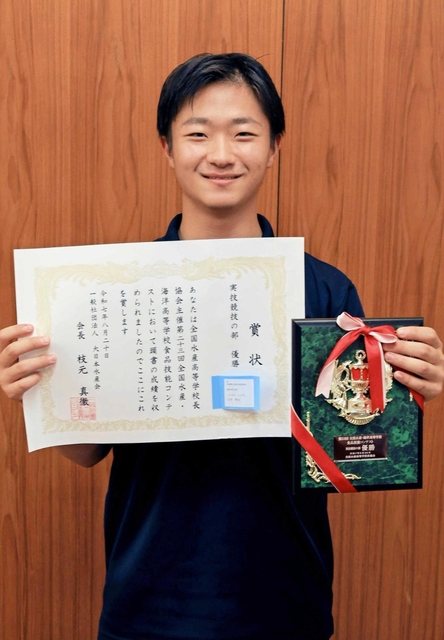 賞状
実技競技の部 優勝
あなたは全国水産高等学校長
協会主催第二十三回全国水産・
海洋高等学校食品技能コンテ
ストにおいて頭書の成績を収
められましたのでここにこれ
を賞します
令和七年八月二十日
一般社団法人 大日本水産会
会長 枝元 真徹
優勝